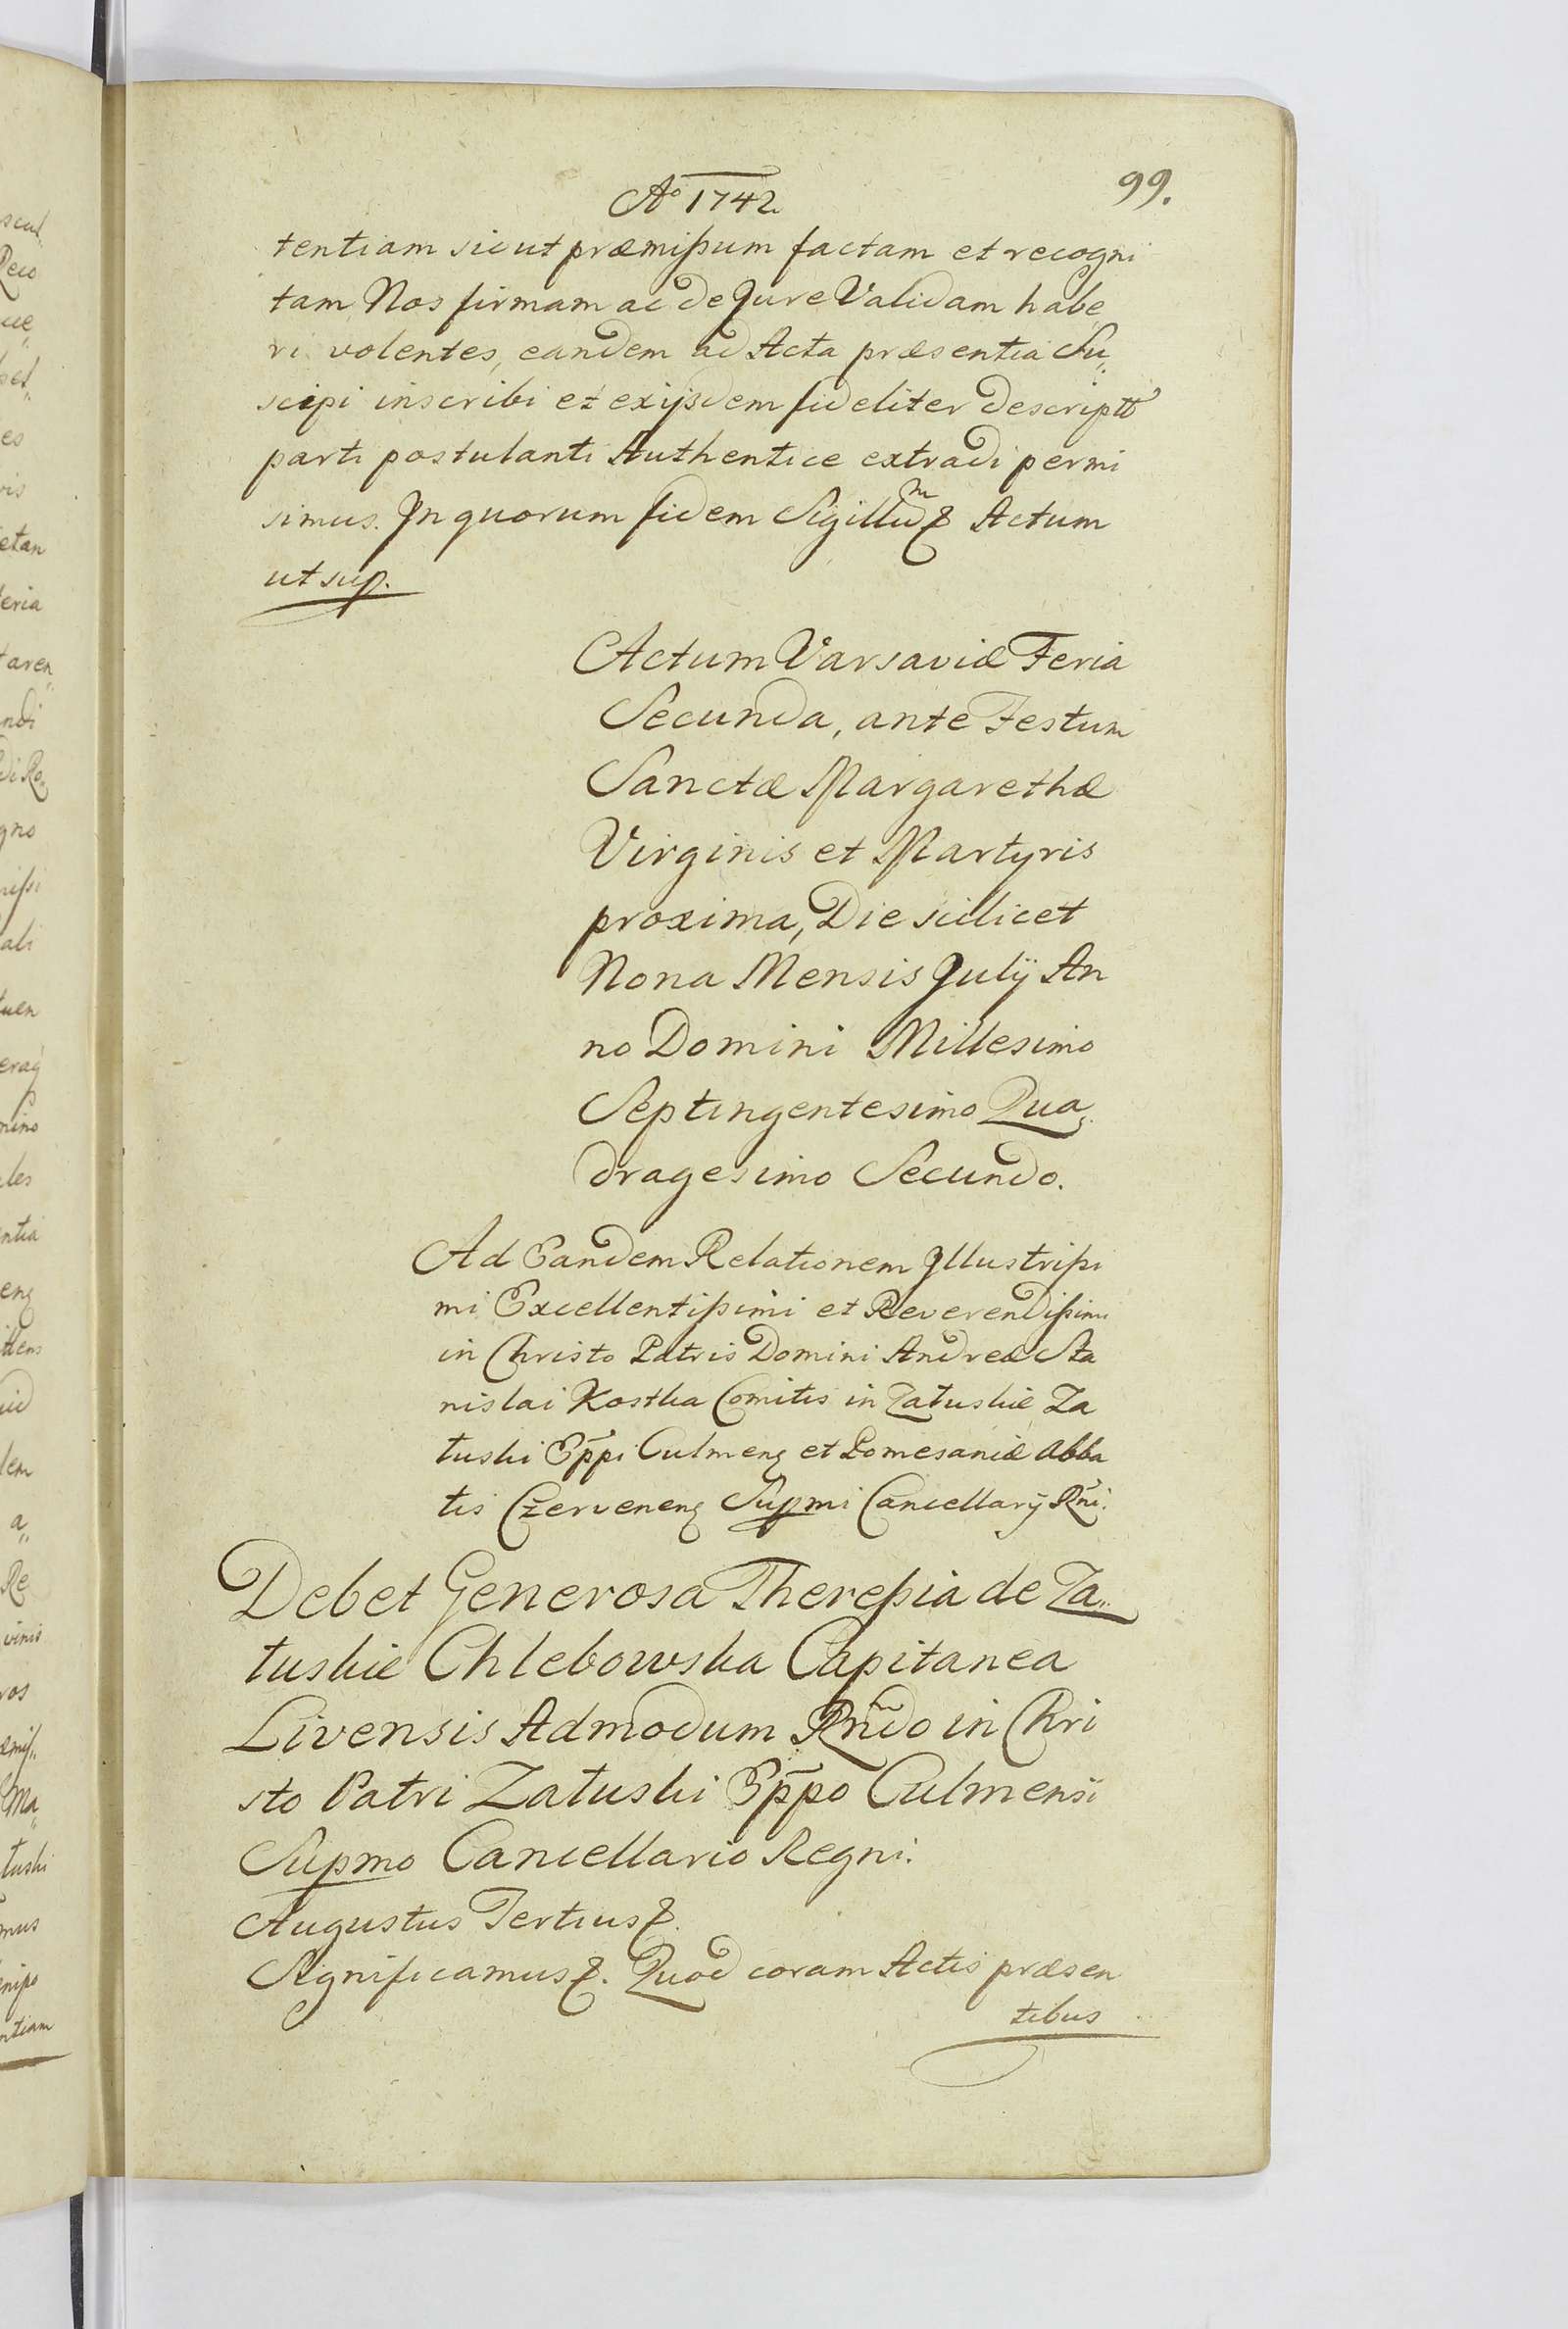 Aº 1742.
99.
tentiam sicut præmissum factam et recogni
tam Nos firmam ac de Jure Validam habe
ri volentes, eandem ad Acta præsentia Su„
scipi inscribi et exijsdem fideliter descriptã
parti postulanti Authentice extradi permi
simus. In quorum fidem Sigillum &c Actum
ut sup.
Actum Varsaviæ Feria
Secunda, ante Festum
Sanctæ Margarethæ
Virginis et Martyris
proxima, Die scilicet
Nona Mensis July An
no Domini Millesimo
Septingentesimo Qua„
dragesimo Secundo.
Ad Eandem Relationem Illustrissi
mi Excellentissimi et Reverendissimi
in Christo Patris Domini Andreæ Sta
nislai Kostka Comitis in Załuskie Za
łuski Eppi Culmen et Pomesaniæ Abba
tis Czerwenen Supmi Cancellarij Rni.
Debet Generosa Theressia de Za„
łuskie Chlebowska Capitanea
Livensis Admodum Rndo in Chri
sto Patri Załuski Eppo Culmensi
Supmo Cancellario Regni.
Augustus Tertius &c.
Significamus &c. Quod coram Actis præsen
tibus